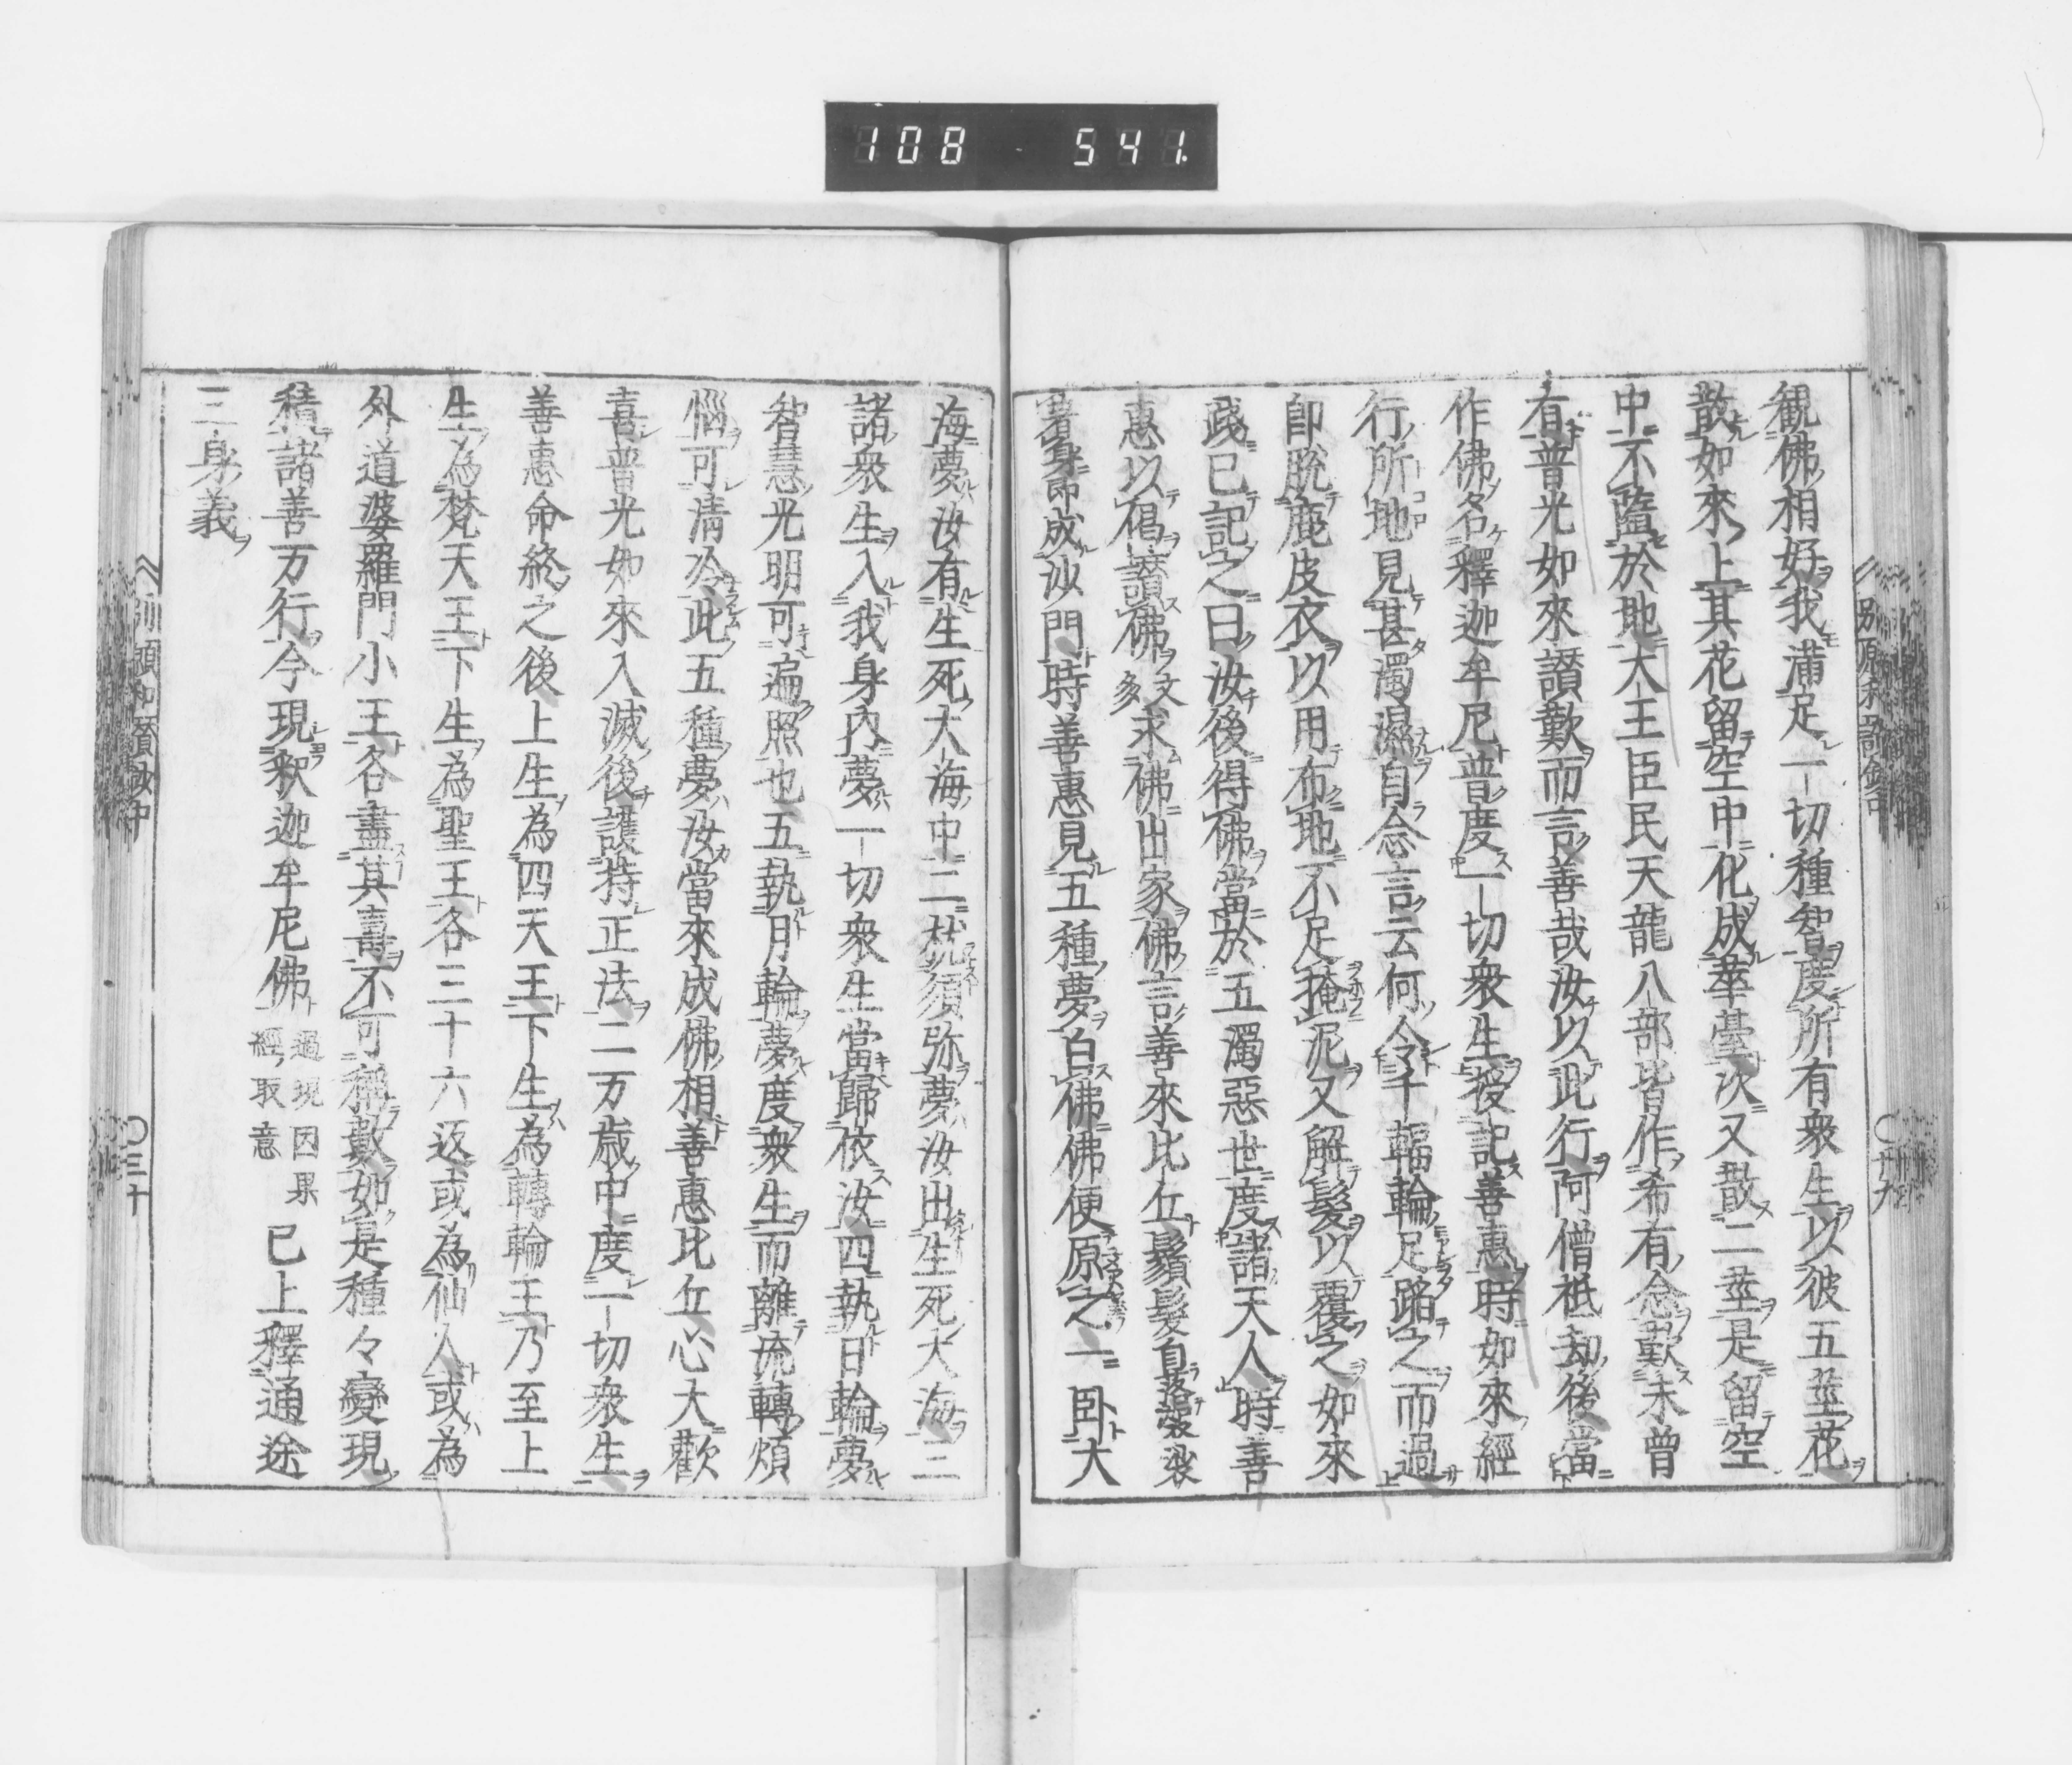 108 541
觀佛相好我滿足一切種智度所有衆生以彼五莖花
散如來上其花留空中化成華臺次又散二莖是留空
中不墮於地大王臣民天龍八部皆作希有念歎未曾
有普光如來讚歎而言善哉汝以此行阿僧祇劫後當
作佛名釋迦牟尼普度一切衆生授記善惠時如來經
行所地見甚濁濕自念言云何令千輻輪足蹈之而過
即脫鹿皮衣以用布地不足掩泥又解髮以覆之如來
踐已記之曰汝後得佛當於五濁惡世度諸天人時善
惠以偈讚佛文多求佛出家佛言善來比丘鬚髮自落袈裟
著身即成沙門時善惠見五種夢白佛佛便原之一臥大
海夢汝有生死大海中二枕須弥夢汝出生死大海三
諸衆生入我身內夢一切衆生當歸依汝四執日輪夢
智慧光明可遍照也五執月輪夢度衆生而離流轉煩
惱可清冷此五種夢汝當來成佛相善惠比丘心大歡
喜普光如來入滅後護持正法二万歲中度一切衆生
善惠命終之後上生為四天王下生為轉輪王乃至上
生為梵天王下生為聖王各三十六返或為仙人或為
外道婆羅門小王各盡其壽不可稱數如是種々變現
積諸善万行今現釈迦牟尼佛過現因果經取意已上釋通途
三身義
三十